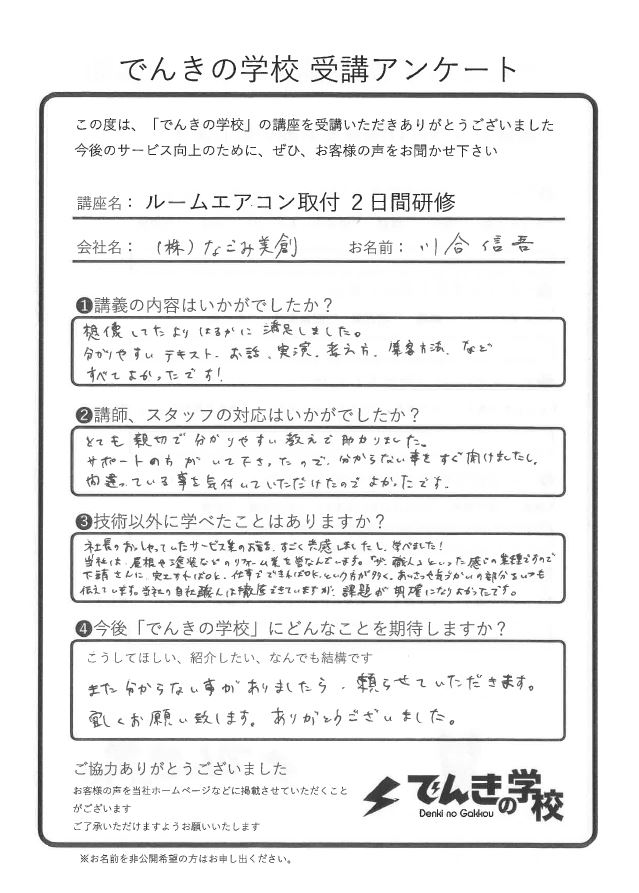 でんきの学校 受講アンケート
この度は、「でんきの学校」の講座を受講いただきありがとうございました
今後のサービス向上のために、ぜひ、お客様の声をお聞かせ下さい
講座名: ルームエアコン取付 2日間研修
会社名: (株)なごみ美創 お名前: 川合信吾
❶講義の内容はいかがでしたか?
想像してたよりはるかに満足しました。
分かりやすいテキスト、お話、実演、考え方、集客方法、など
すべてよかったです!
❷講師、スタッフの対応はいかがでしたか?
とても親切で分かりやすい教えで助かりました。
サポートの方がいて下さったので、分からない事をすぐ聞けましたし、
間違っている事を気付いていただけたのでよかったです。
❸技術以外に学べたことはありますか?
社長のおっしゃっていたサービス業のお話を、すごく共感しましたし、学べました!
当社は、屋根や塗装などのリフォーム業を営なんでいます。「ザ・職人」といった感じの業種ですので
下請さんに、完工すればOKと、仕事できればOKという方が多く、あいさつや気づかいの部分をいつも
伝えてします。当社の自社職人は徹底できていますが、課題が明確になりよかったです。
❹今後「でんきの学校」にどんなことを期待しますか?
こうしてほしい、紹介したい、なんでも結構です
また分からない事がありましたら、頼らせていただきます。
宜しくお願い致します。ありがとうございました。
ご協力ありがとうございました
お客様の声を当社ホームページなどに掲載させていただくこと
がございます
ご了承いただけますようお願いいたします
でんきの学校
Denki no Gakkou
※お名前を非公開希望の方はお申し出ください。